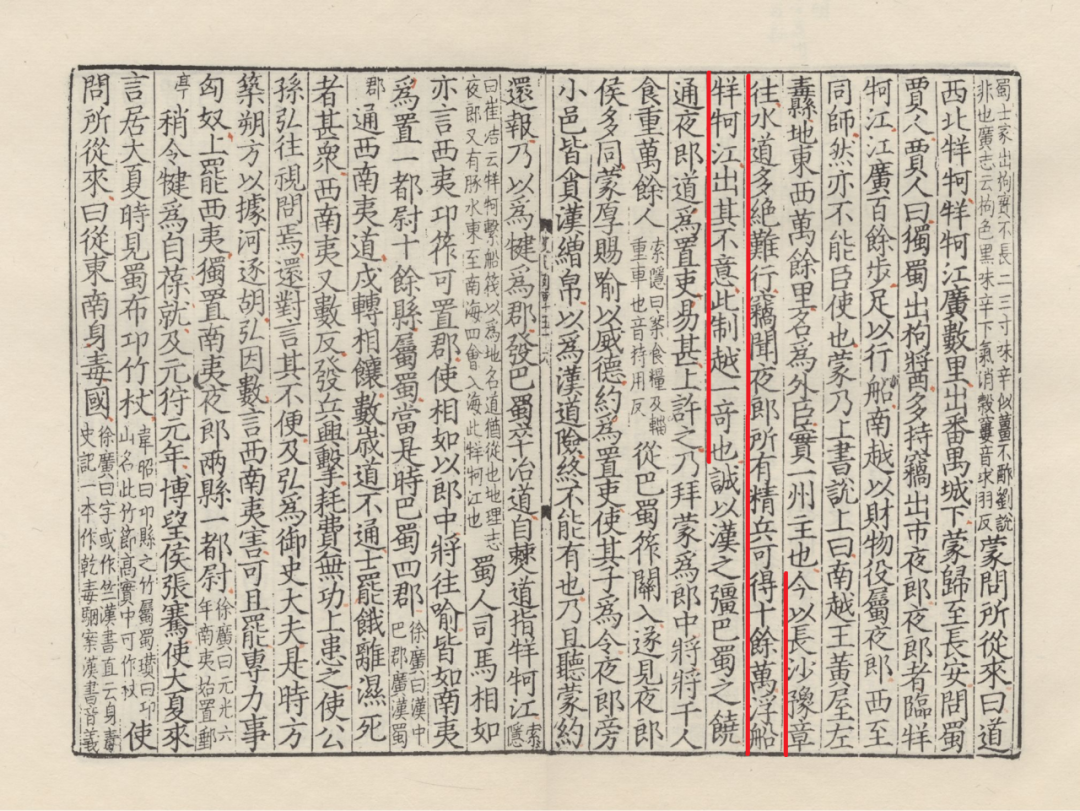 蜀士家出枸實不長二三寸味辛似薑不酢劉說
非也廣志云枸色黑味辛下氣消穀窶音求羽反
蒙問所從來曰道
西北牂牁牂牁江廣數里出番禺城下蒙歸至長安問蜀
賈人賈人曰獨蜀出枸醬多持竊出市夜郎夜郎者臨牂
牁江江廣百餘步足以行船南越以財物役屬夜郎西至
同師然亦不能臣使也蒙乃上書說上曰南越王黃屋左
纛縣地東西萬餘里名為外臣實一州主也今以長沙豫章
往水道多絕難行竊聞夜郎所有精兵可得十餘萬浮船
牂牁江出其不意此制越一竒也誠以漢之彊巴蜀之饒
通夜郎道為置吏易甚上許之乃拜蒙為郎中將將千人
食重萬餘人
索隱曰案食糧及輜
重車也音持用反
從巴蜀筰關入遂見夜郎
侯多同蒙厚賜喻以威德約為置吏使其子為令夜郎旁
小邑皆貪漢繒帛以為漢道險終不能有也乃且聽蒙約
還報乃以為犍為郡發巴蜀卒治道自僰道指牂牁江
索隱
曰崔浩云牂牁繫船筏以為地名道猶從也地理志
夜郎又有豚水東至南海四會入海此牂牁江也
蜀人司馬相如
亦言西夷邛筰可置郡使相如以郎中將往喻皆如南夷
為置一都尉十餘縣屬蜀當是時巴蜀四郡
徐廣曰漢中
巴郡廣漢蜀
郡
通西南夷道戍轉相饟數歲道不通士罷餓離濕死
者甚衆西南夷又數反發兵興擊耗費無功上患之使公
孫弘往視問焉還對言其不便及弘為御史大夫是時方
築朔方以據河逐胡弘因數言西南夷害可且罷專力事
匈奴上罷西夷獨置南夷夜郎兩縣一都尉
徐廣曰元光六
年南夷始置郵
亭
稍令犍為自葆就及元狩元年博望侯張騫使大夏來
言居大夏時見蜀布邛竹杖
韋昭曰邛縣之竹屬蜀瓚曰邛
山名此竹節高實中可作杖
使
問所從來曰從東南身毒國
徐廣曰字或作竺漢書直云身毒
史記一本作乾毒駰案漢書音義